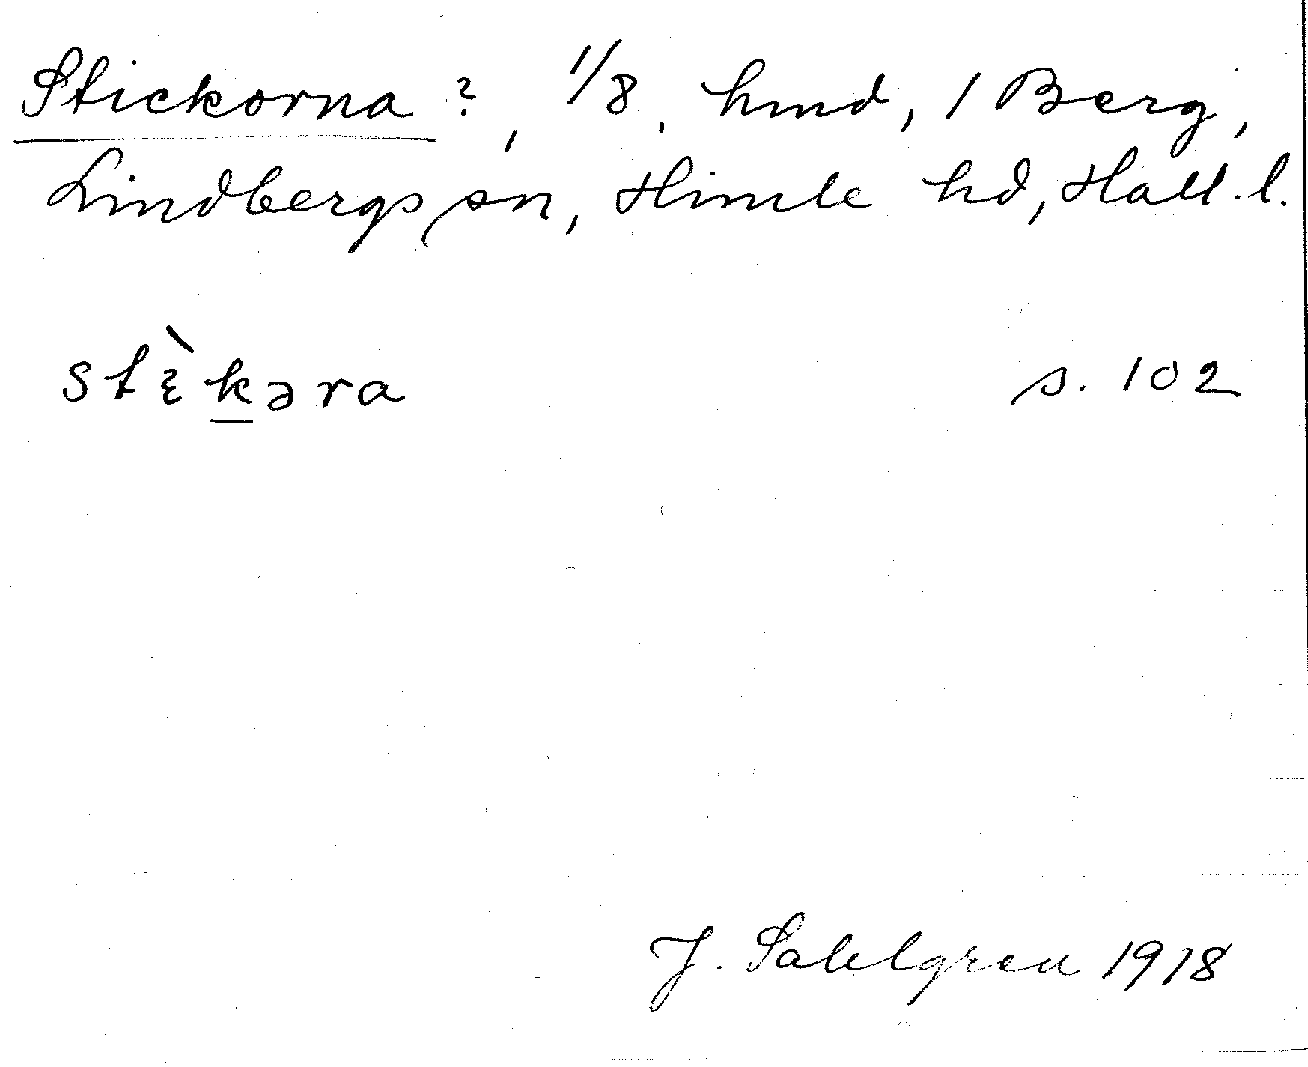 Stickorna ?, 1/8. hmd, 1 Berg,
Lindbergs sn, Himle hd, Hall. l.
stὲkəra s. 102
J. Sahlgren 1918